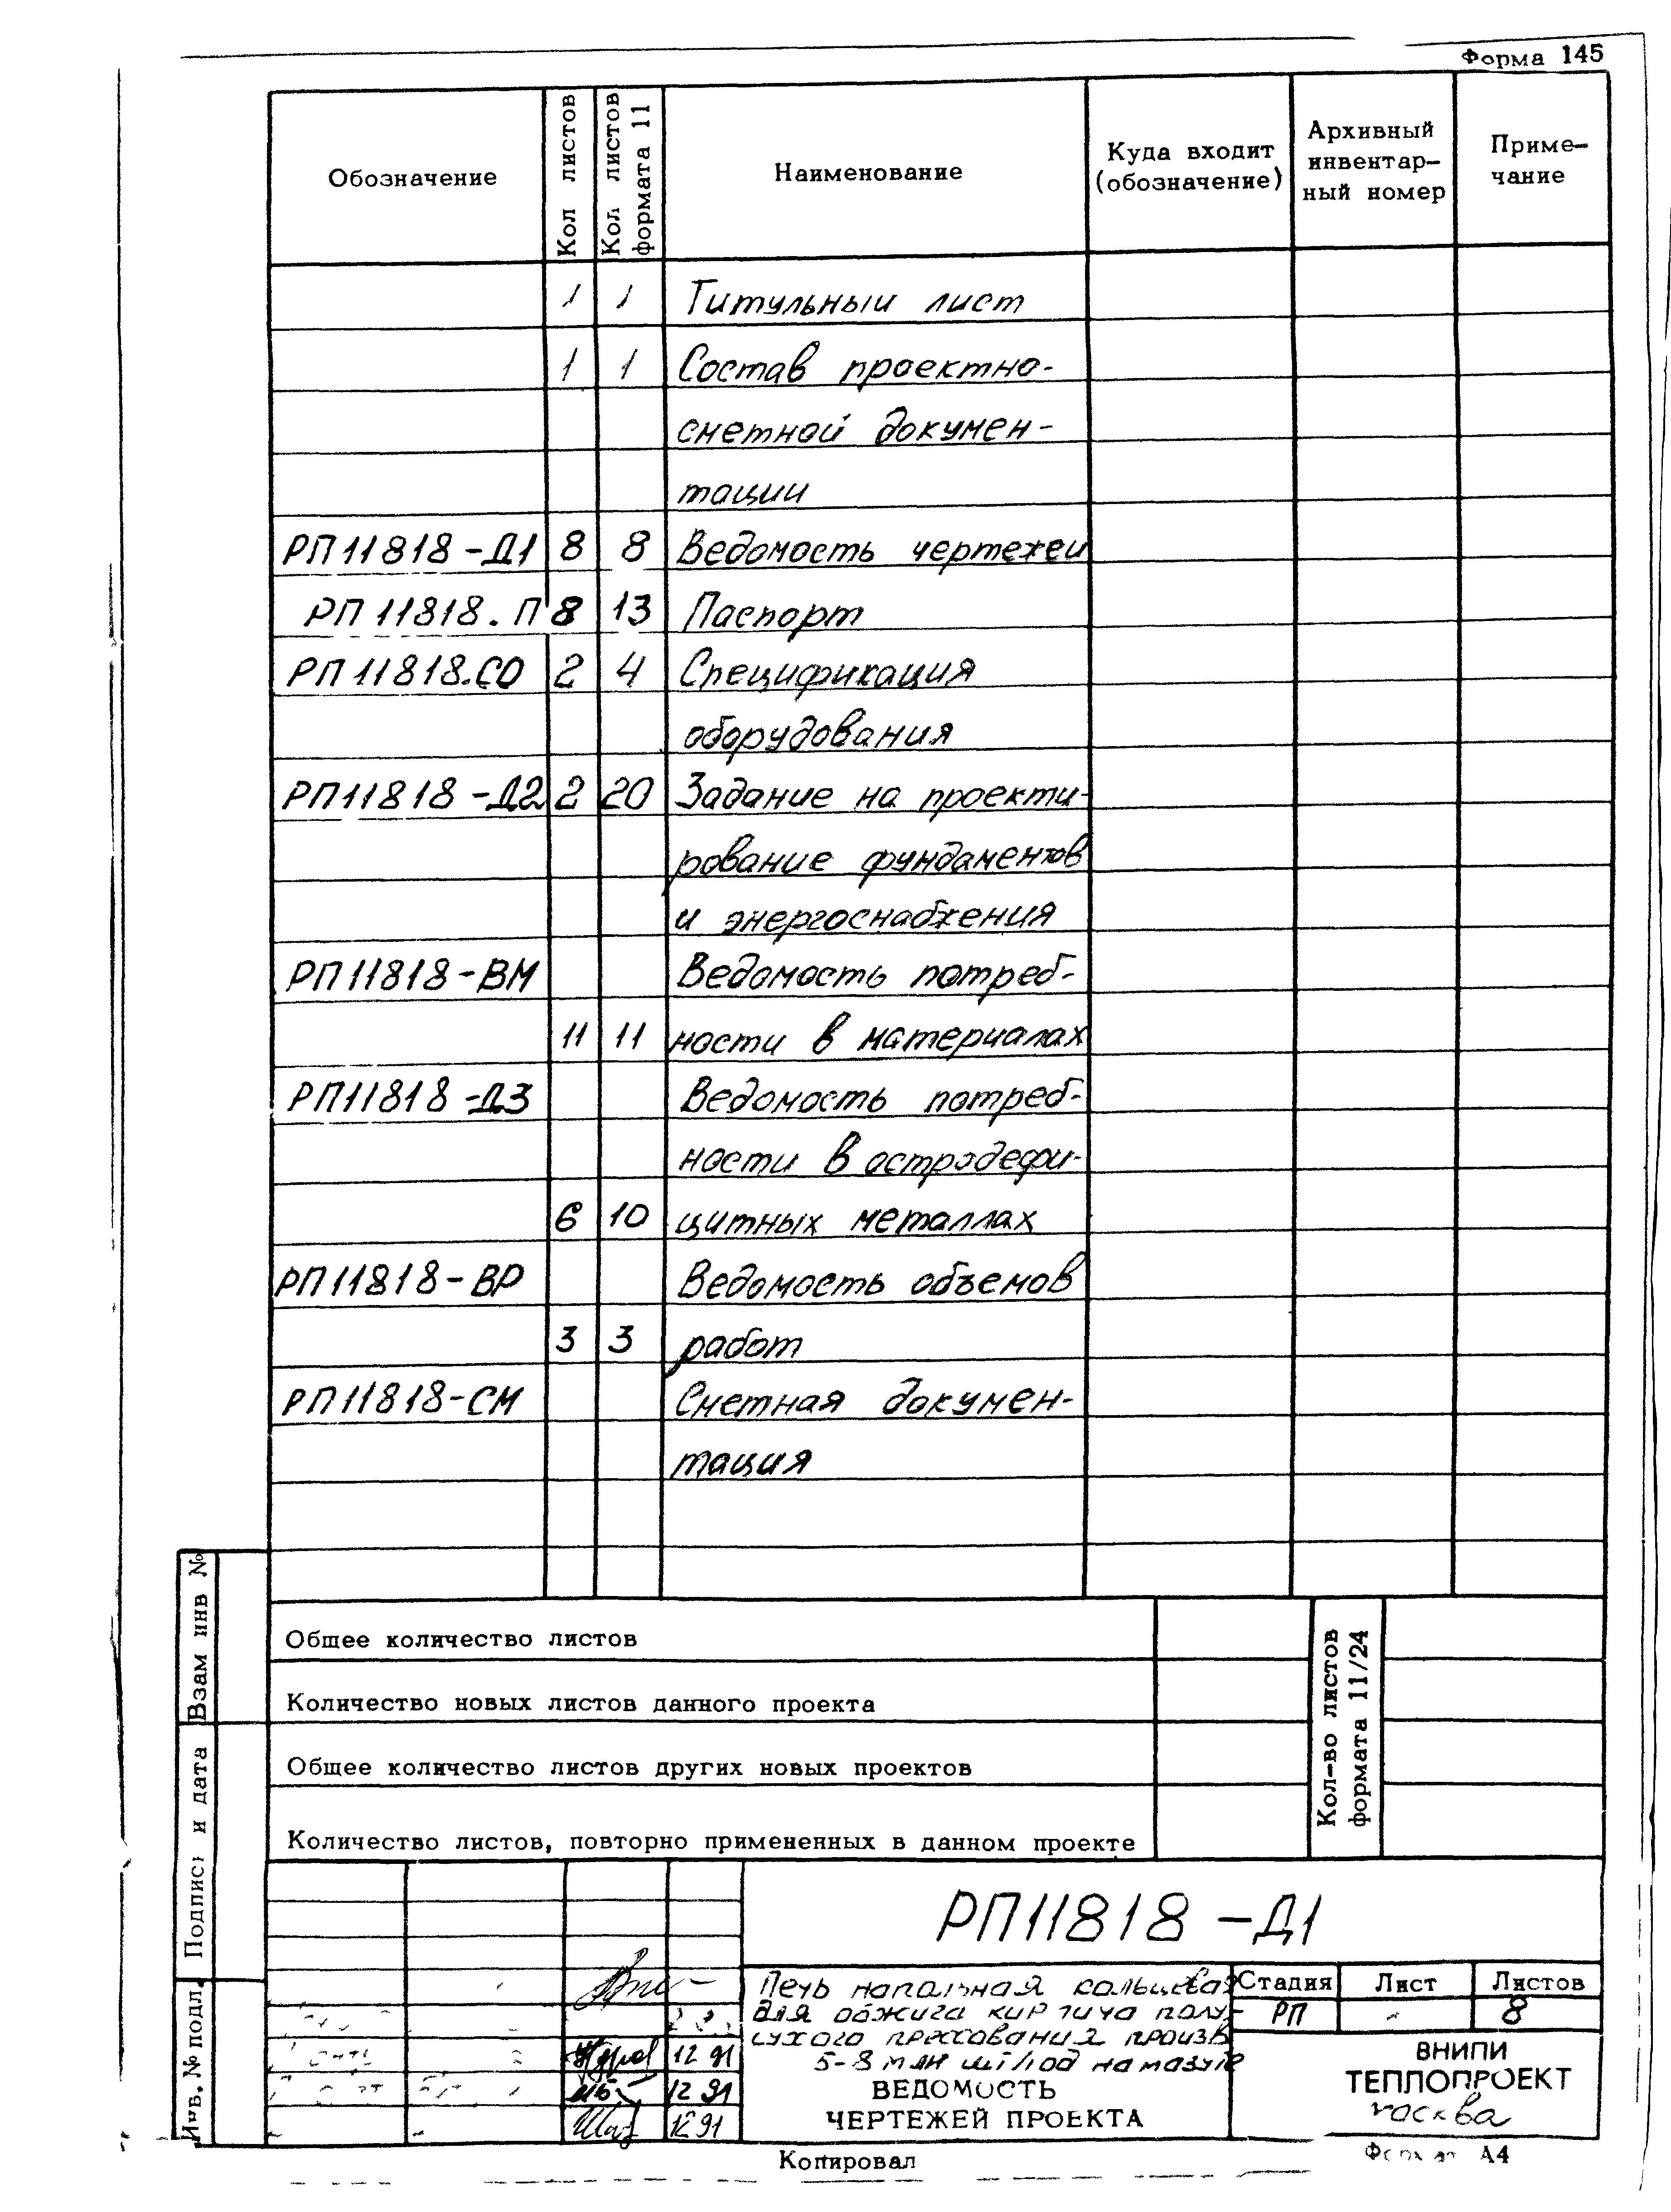 Форма 145
Обозначение
Кол листов
Кол листов формата 11
Наименование
Куда входит (обозначение)
Архивный инвентар- ный номер
Приме- чание
1 1 Титульный лист
1 1 Состав проектно-
сметной докумен-
тации
РП11818-Д1 8 8 Ведомость чертежей
РП 11818.П 8 13 Паспорт
РП11818.СО 2 4 Спецификация
оборудования
РП11818-Д2 2 20 Задание на проекти-
рование фундаментов
и энергоснабжения
РП11818-ВМ Ведомость потреб-
11 11 ности в материалах
РП11818-Д3 Ведомость потреб-
ности в остродефи-
6 10 цитных металлах
РП11818-ВР Ведомость объемов
3 3 работ
РП11818-СМ Сметная докумен-
тация
Общее количество листов
Количество новых листов данного проекта
Общее количество листов других новых проектов
Количество листов, повторно примененных в данном проекте
Кол-во листов формата 11/24
Взам инв №
Подпись и дата
Инв. № подл.
РП11818-Д1
Печь напольная кольцевая
для обжига кирпича полу-
сухого прессования произв
5-8 млн шт/год на мазуте
ВЕДОМОСТЬ
ЧЕРТЕЖЕЙ ПРОЕКТА
Стадия Лист Листов
РП - 8
ВНИПИ
ТЕПЛОПРОЕКТ
Москва
12 91
12 91
12 91
Копировал
Формат А4